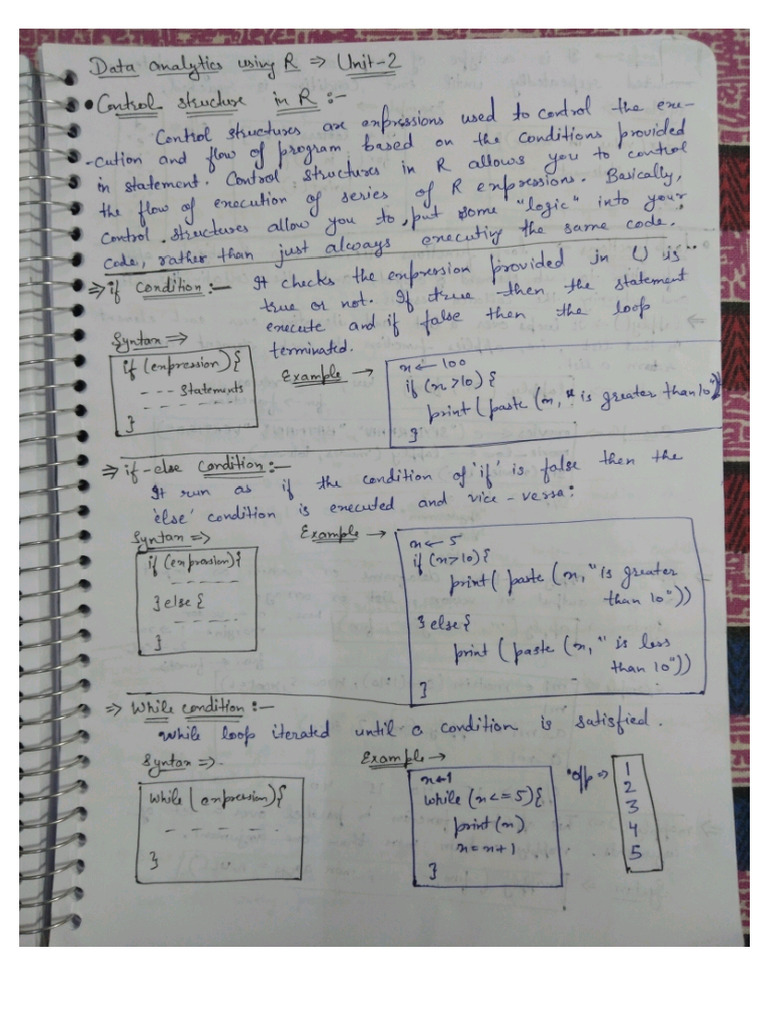 Data analytics using R ⇒ Unit-2
• Control structure in R :-
Control structures are expressions used to control the exe-
-cution and flow of program based on the conditions provided
in statement. Control structures in R allows you to control
the flow of execution of series of R expressions. Basically,
control structures allow you to put some "logic" into your
code, rather than just always executing the same code.
⇒ if Condition :- It checks the expression provided in () is
true or not. If true then the statement
execute and if false then the loop
terminated.
Syntax ⇒
if (expression) {
- - - Statements
- - - - - - -
}
Example →
x ← 100
if (x >10) {
print ( paste (x, "is greater than 10")
}
⇒ if-else Condition :-
It run as if the condition of 'if' is false then the
'else' condition is executed and vice-versa:
Syntax ⇒
if (expression) {
- - - - - -
} else {
- - - - -
}
Example →
x ← 5
if (x >10) {
print ( paste (x, "is greater
than 10"))
} else {
print ( paste (x, " is less
than 10"))
}
⇒ While condition :-
while loop iterated until a condition is satisfied.
Syntax ⇒
while ( expression) {
- - - - - -
}
Example →
x ← 1
while (x <= 5) {
print (x)
x = x + 1
}
o/p ⇒
1
2
3
4
5